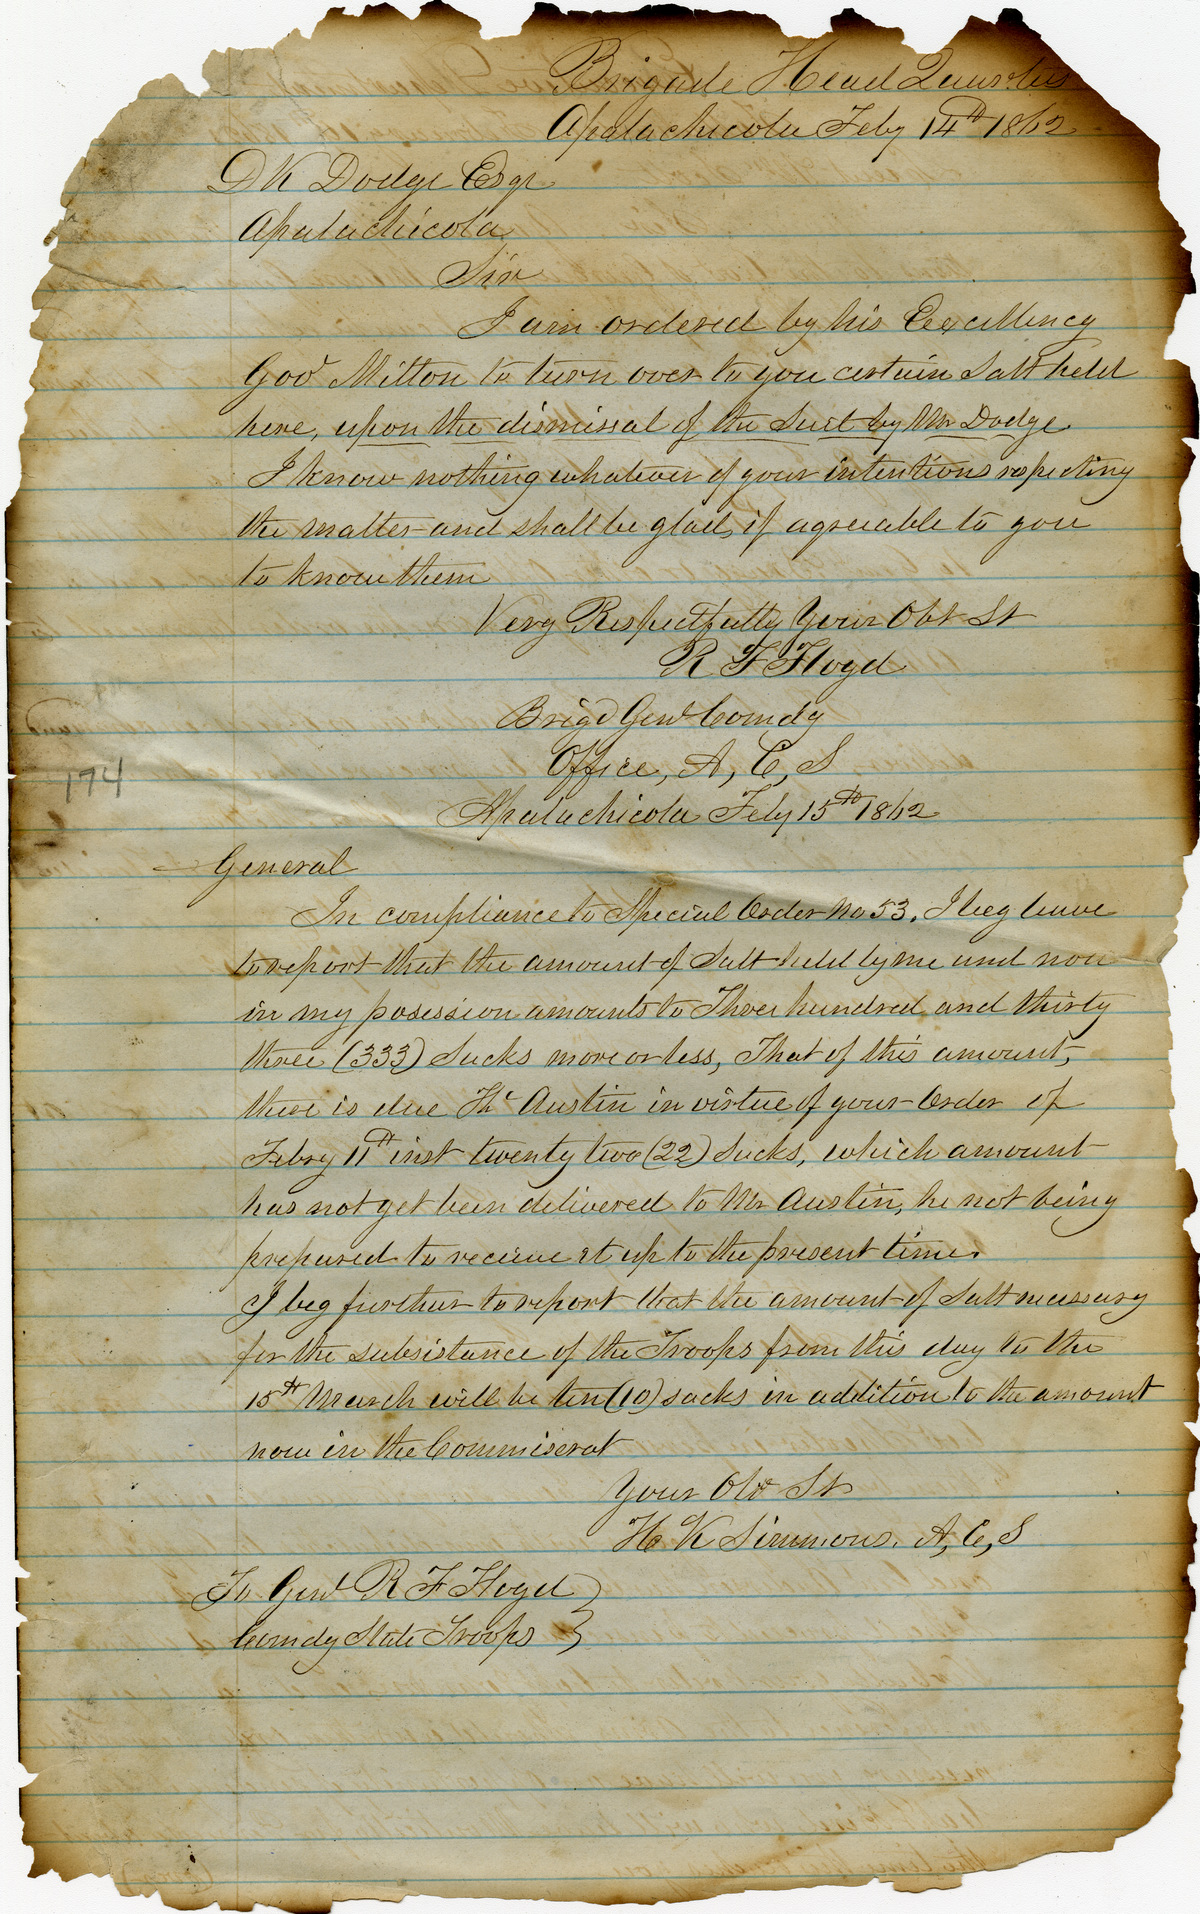 Brigade Head Quarters
Apalachicola Feby 14th 1862
D K Dodge Esqr
Apalachicola
Sir
I am ordered by his Excellency
Govr Milton to turn over to you certain Salt held
here, upon the dismissal of the Suit by Mr Dodge
I know nothing whatever of your intentions respecting
the matter and shall be glad, if agreeable to you
to know them
Very Respectfully Your Obt St
R F Floyd
Brigd Genl Comdg
Office, A, C, S
Apalachicola Feby 15th 1862
General
In compliance to Special Order No 53. I beg leave
to report that the amount of Salt held by me and now
in my posession amounts to Three hundred and thirty
three (333) Sacks more or less, That of this amount,
there is due Mr Austin in virtue of your Order of
Febry 11th inst twenty two (22) Sacks, which amount
has not yet been delivered to Mr Austin, he not being
prepared to recieve it up to the present time.
I beg further to report that the amount of Salt necessary
for the subsistance of the Troops from this day to the
15th March will be ten (10) sacks in addition to the amount
now in the Commiserat
Your Obt St
H K Simmons. A, C, S
To Genl R F Floyd
Comdg State Troops
174